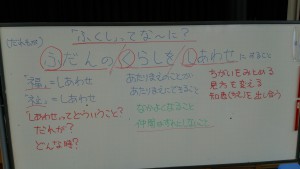 "ふくしってな〜に?
(だれもが)
ふだんの くらしを しあわせ にすること
「福」=しあわせ
「祉」=しあわせ
「しあわせ」ってどういうこと?
だれが?
どんな時?
あたりまえのことが
あたりまえにできること
なかよくなること
仲間はずれにしないこと
ちがいをみとめる
見方を変える
知恵を出し合う